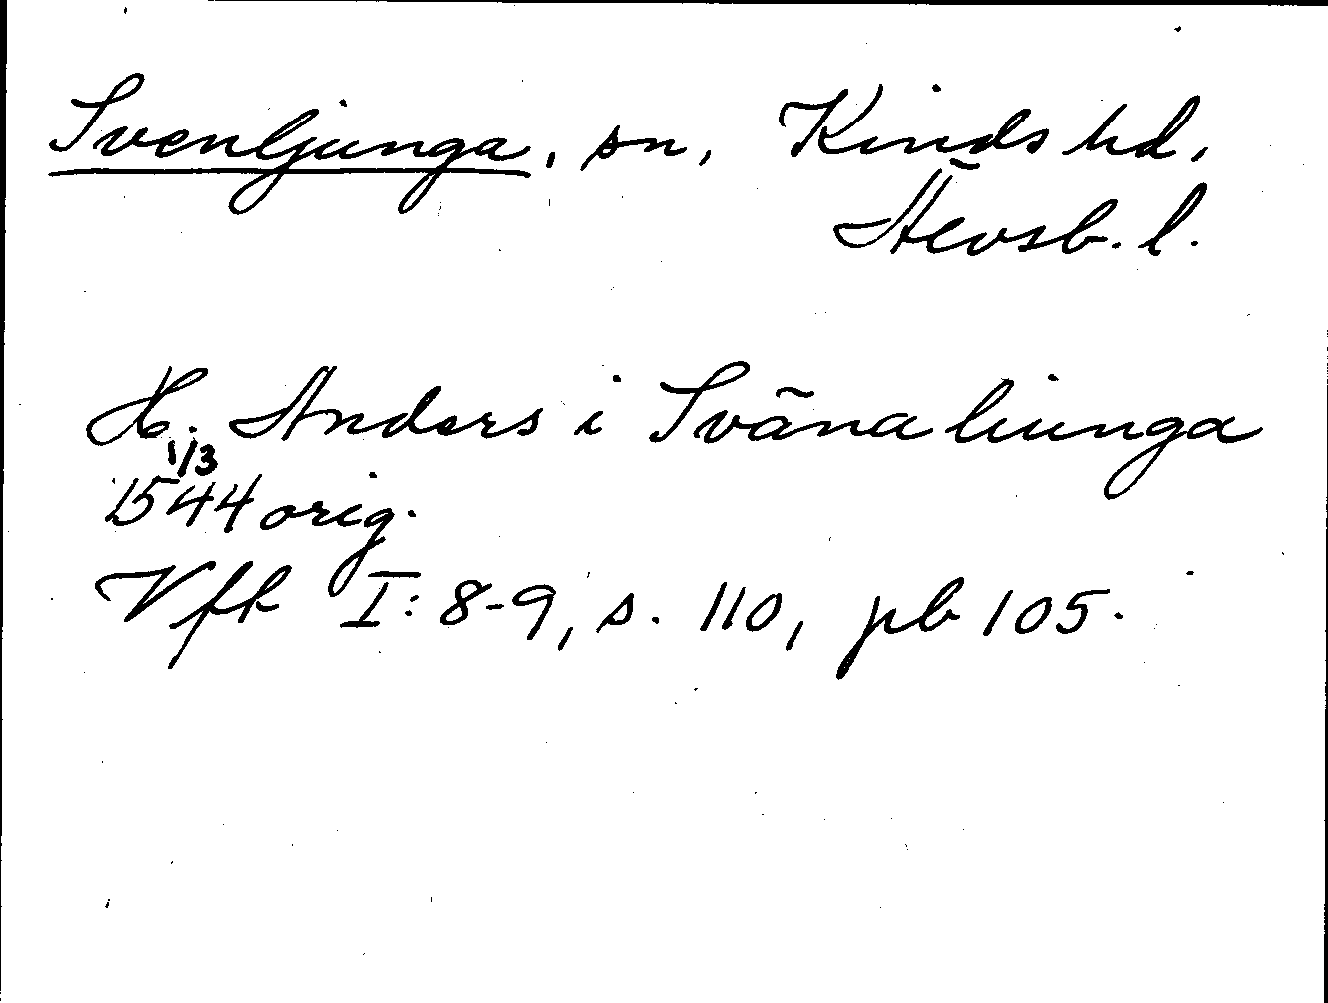 Svenljunga, sn, Kinds hd,
Älvsb. l.
H. Anders i Swäna liunga
1/3
1544 orig.
Vfk I: 8-9, s. 110, pb 105.